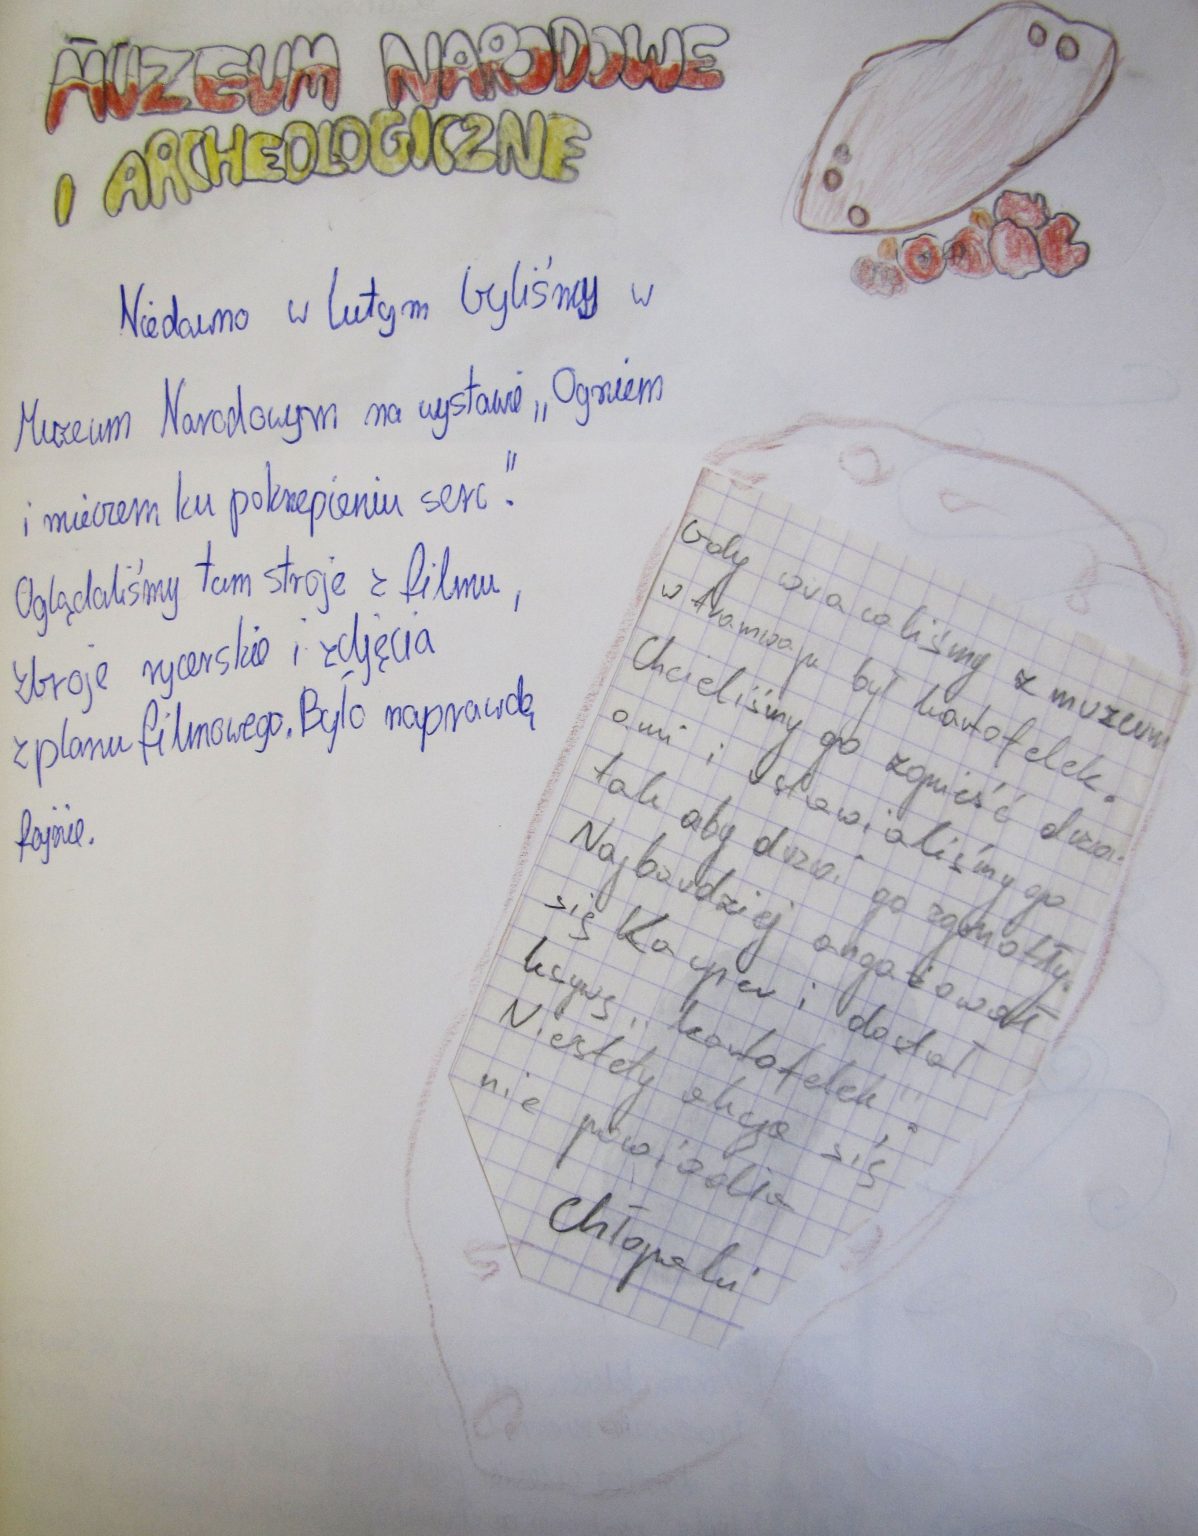 MUZEUM NARODOWE
I ARCHEOLOGICZNE
Niedawno w lutym byliśmy w
Muzeum Narodowym na wystawie „Ogniem
i mieczem ku pokrzepieniu serc".
Oglądaliśmy tam stroje z filmu,
zbroje rycerskie i zdjęcia
z planu filmowego. Było naprawdę
fajnie.
Gdy wracaliśmy z muzeum
w tramwaju był kartofelek.
Chcieliśmy go zgnieść drzwi-
ami i ustawialiśmy go
tak aby drzwi go zgniotły.
Najbardziej angażował
się Kacper i dostał
ksywę „kartofelek".
Niestety akcja się
nie powiodła
Chłopaki